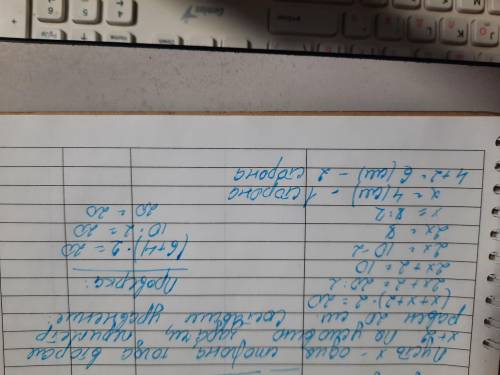 Пусть x - одна сторона, тогда вторая
x+2. По условию задачи, периметр
равен 20 см составим уравнение:
(x+x+2)·2=20
2x+2=20:2
2x+2=10
2x=10-2
2x=8
x=8:2
x=4(см) - 1 сторона
4+2=6(см) - 2 сторона
Проверка:
(6+4)·2=20
10·2=20
20=20